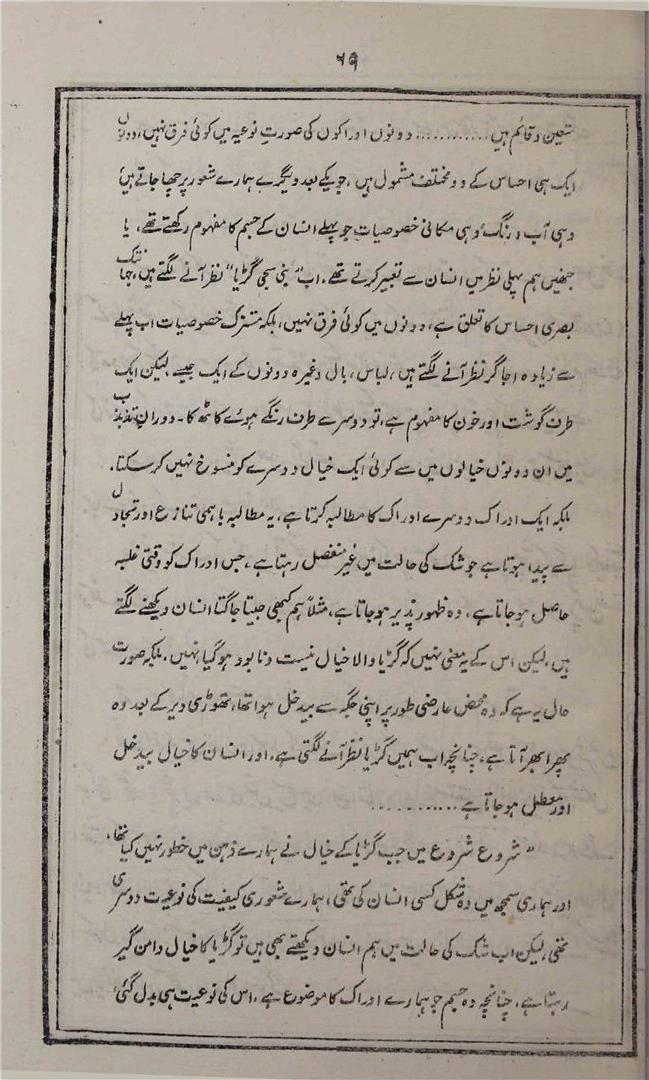 ۶۹
متعین و قائم ہیں............ دونوں ادراکوں کی صورتِ نوعیہ میں کوئی فرق نہیں، دونوں
ایک ہی احساس کے دو مختلف مشمول ہیں، جو یکے بعد دیگرے ہمارے شعور پر چھا جاتے ہیں
وہی آب و رنگ، وہی مکانی خصوصیات جو پہلے انسان کے جسم کا مفہوم رکھتے تھے، یا
جنھیں ہم پہلی نظر میں انسان سے تعبیر کرتے تھے۔ اب "بنی سجی گڑیا" نظر آنے لگتے ہیں، جہانتک
بصری احساس کا تعلق ہے، دونوں میں کوئی فرق نہیں، بلکہ مشترک خصوصیات اب پہلے
سے زیادہ اجاگر نظر آنے لگتے ہیں، لباس، بال وغیرہ دونوں کے ایک جیسے لیکن ایک
طرف گوشت اور خون کا مفہوم ہے، تو دوسرے طرف رنگے ہوئے کاٹھ کا۔ دورانِ تذبذب
میں ان دونوں خیالوں میں سے کوئی ایک خیال دوسرے کو منسوخ نہیں کر سکتا۔
بلکہ ایک ادراک دوسرے ادراک کا مطالبہ کرتا ہے، یہ مطالبہ باہمی تنازع اور تجادل
سے پیدا ہوتا ہے جو شک کی حالت میں غیر منفصل رہتا ہے، جس ادراک کو وقتی غلبہ
حاصل ہو جاتا ہے، وہ ظہور پذیر ہو جاتا ہے، مثلاً ہم کبھی جیتا جاگتا انسان دیکھنے لگتے
ہیں، لیکن اس کے یہ معنی نہیں کہ گڑیا والا خیال نیست و نابود ہو گیا نہیں۔ بلکہ صورت
حال یہ ہے کہ وہ محض عارضی طور پر اپنی جگہ سے بیدخل ہوا تھا، تھوڑی دیر کے بعد وہ
پھر ابھر آتا ہے، چنانچہ اب ہمیں گڑیا نظر آنے لگتی ہے، اور انسان کا خیال بیدخل
اور معطل ہو جاتا ہے...........
"شروع شروع میں جب گڑیا کے خیال نے ہمارے ذہن میں خطور نہیں کیا تھا،
اور ہماری سمجھ میں وہ شکل کسی انسان کی تھی، ہمارے شعوری کیفیت کی نوعیت دوسری
تھی، لیکن اب شک کی حالت میں ہم انسان دیکھتے بھی ہیں تو گڑیا کا خیال دامن گیر
رہتا ہے، چنانچہ وہ جسم جو ہمارے ادراک کا موضوع ہے، اس کی نوعیت ہی بدل گئی،